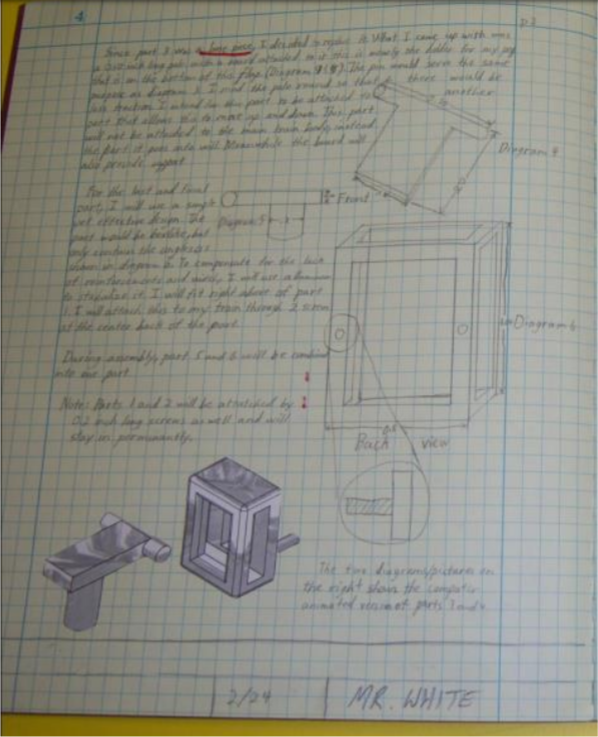 4
p.2
Since part 3 was a I decided to replace it. What I came up with was
a inch long with a board attached to it this is mostly the holder for my
that is on the bottom of this flap. (Diagram The pin would serve the same
purpose as diagram 3. I the pole around so that there would be
less fraction. I intend for this part to be attached to another
part that allows this to move up and down. This part
will not be attached to the main train body, instead
the part it goes into will. Meanwhile the board will
also provide support.
Diagram 4
For the last and final
part, I will use a simple
yet effective design. The
part would be but
only contain the
shown in diagram 6. To compensate for the lack
of reinforcements and I will use aluminum
to stabalize it. I will fit right above of part
1. I will attach this to my train through 2 screws
at the center back of the part.
Diagram 5
Front
Diagram 6
During assembly, part 5 and 6 will be combined
into one part.
Note: Parts 1 and 2 will be attatched by
0.2 inch long screws as well and will
stay on permanently.
Back view
The two diagrams/pictures on
the right shows the computer
animated version of parts
2/24
MR. WHITE